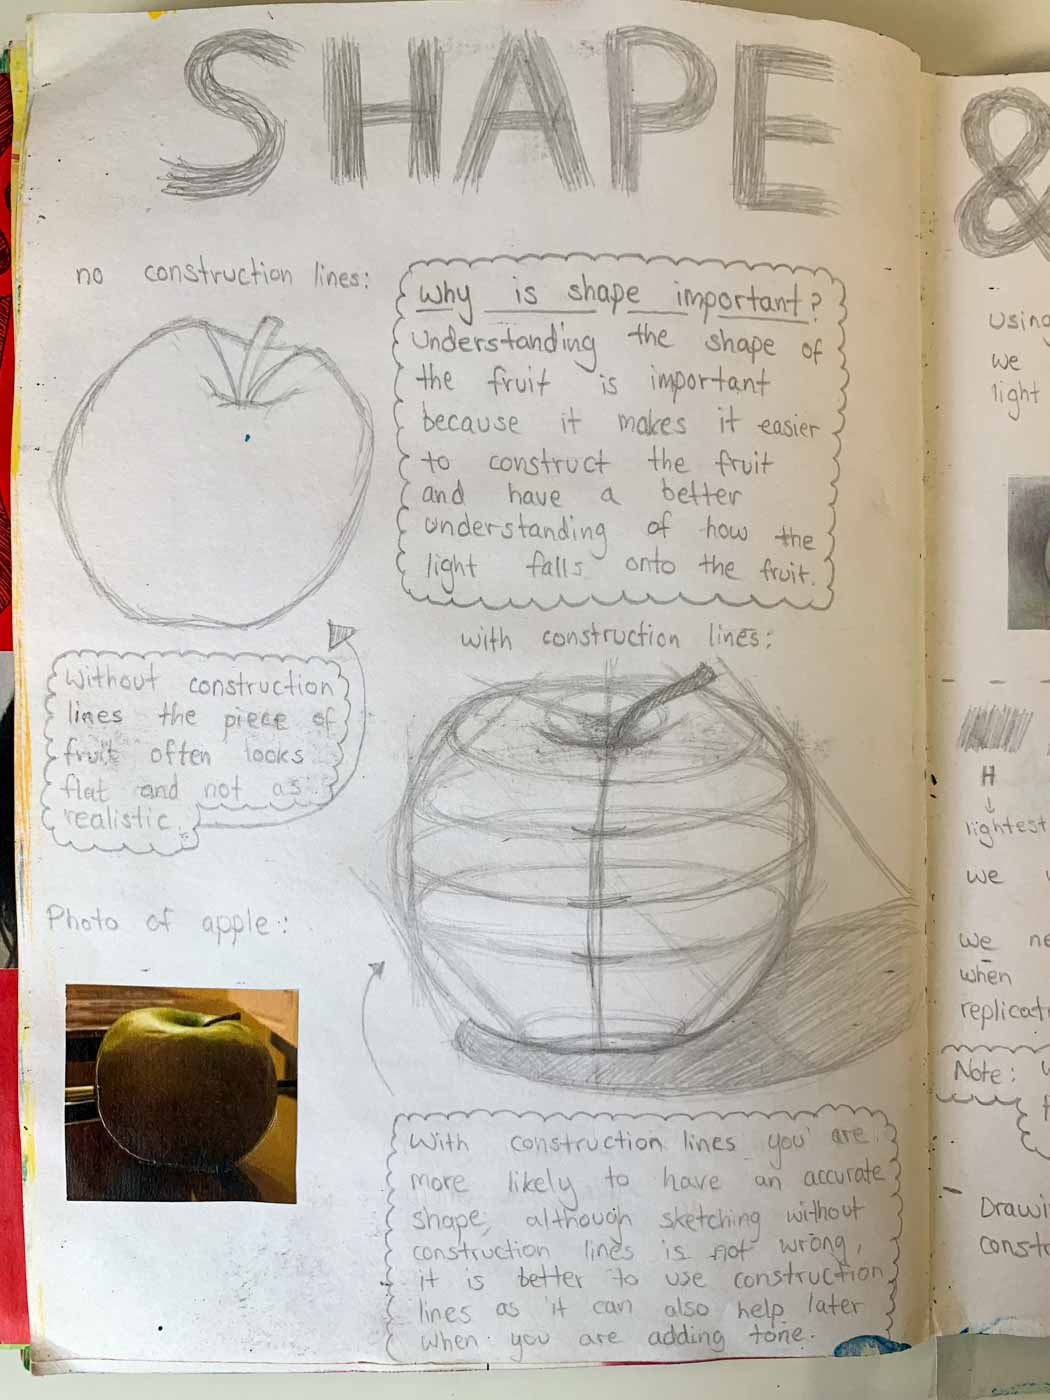 SHAPE
no construction lines:
why is shape important?
Understanding the shape of
the fruit is important
because it makes it easier
to construct the fruit
and have a better
understanding of how the
light falls onto the fruit.
with construction lines:
Without construction
lines the piece of
fruit often looks
flat and not as
realistic.
Photo of apple:
With construction lines you are
more likely to have an accurate
shape, although sketching without
construction lines is not wrong,
it is better to use construction
lines as it can also help later
when you are adding tone.
&
Using
we
light
H
lightest
we
we ne
when
replicat
Note:
Drawi
constr